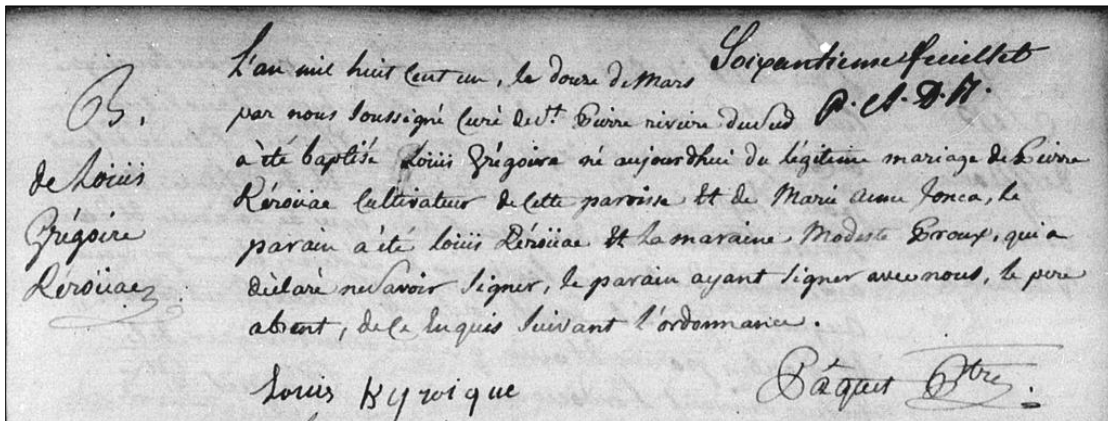 Soixantieme feuillet
P. A. D. R.
B.
de Loüis
Grégoire
Kéroüac
L'an mil huit Cent un, le douze de Mars
par nous soussigné Curé de St. Pierre riviere du Sud
a été baptisé Loüis Grégoire né aujourdhui du légitime mariage de Pierre
Kéroüac Cultivateur de Cette paroisse et de Marie anne Jonca, le
parain a été loüis Kéroüac et la maraine Modeste Proux, qui a
déclaré ne Savoir Signer, le parain ayant Signer avec nous, le pere
absent, de Ce Enquis Suivant l'ordonnance.
Louis Kyroique
Pâquet Ptre.